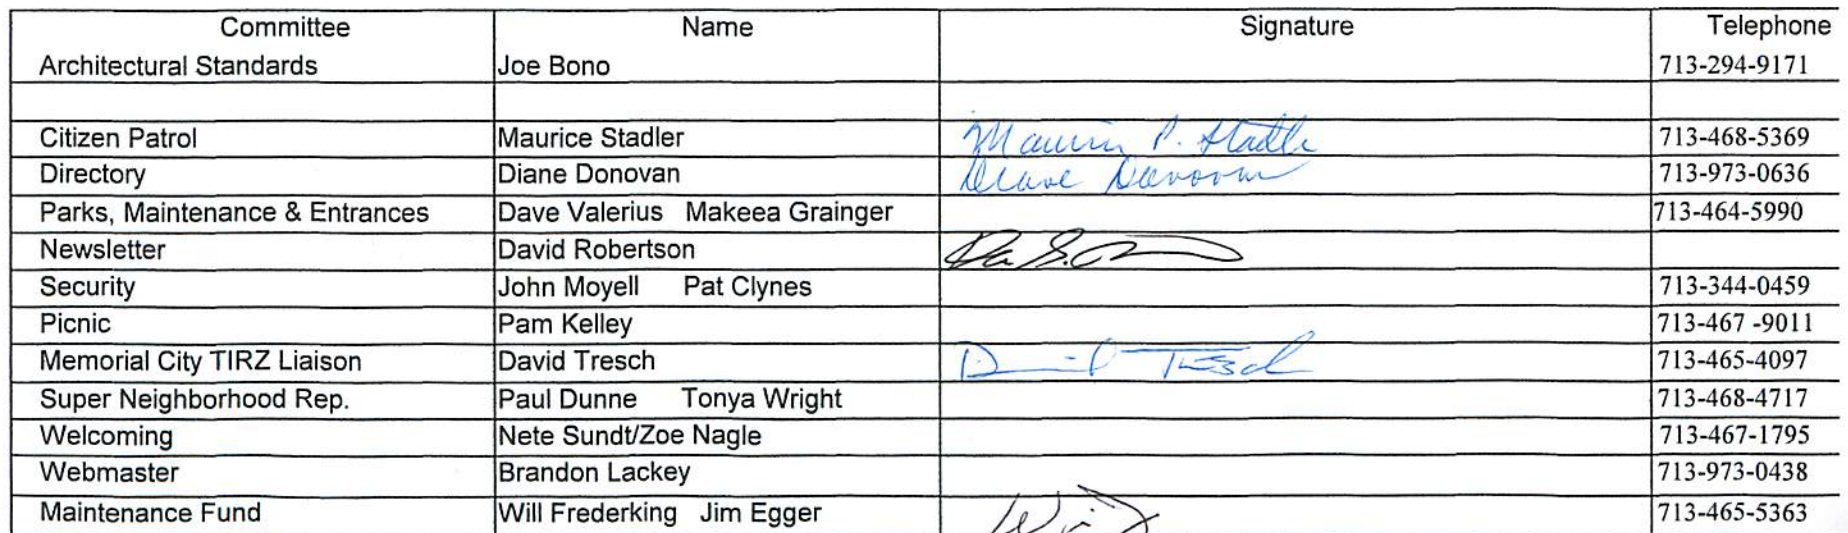 Committee Name Signature Telephone
Architectural Standards Joe Bono 713-294-9171
Citizen Patrol Maurice Stadler Maurice P. Stadler 713-468-5369
Directory Diane Donovan Diane Donovan 713-973-0636
Parks, Maintenance & Entrances Dave Valerius Makeea Grainger 713-464-5990
Newsletter David Robertson
Security John Moyell Pat Clynes 713-344-0459
Picnic Pam Kelley 713-467 -9011
Memorial City TIRZ Liaison David Tresch David Tresch 713-465-4097
Super Neighborhood Rep. Paul Dunne Tonya Wright 713-468-4717
Welcoming Nete Sundt/Zoe Nagle 713-467-1795
Webmaster Brandon Lackey 713-973-0438
Maintenance Fund Will Frederking Jim Egger 713-465-5363